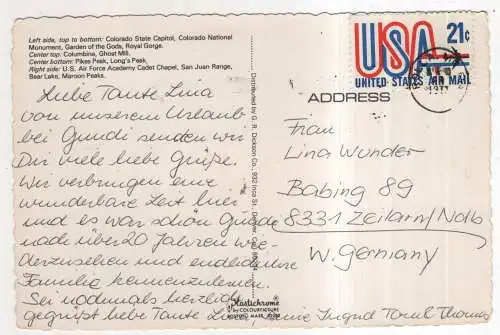 Left side, top to bottom: Colorado State Capitol, Colorado National
Monument, Garden of the Gods, Royal Gorge.
Center top: Columbine, Ghost Mill.
Center bottom: Pikes Peak, Long's Peak.
Right side: U.S. Air Force Academy Cadet Chapel, San Juan Range,
Bear Lake, Maroon Peaks.
Liebe Tante Lina
von unserem Urlaub
bei Gundi senden wir
Dir viele liebe Grüße.
Wir verbringen eine
wunderbare Zeit hier
und es war schön Gundi
nach über 20 Jahren wie-
derzusehen und endlich ihre
Familie kennenzulernen.
Sei nochmals herzlich
gegrüßt liebe Tante Lina Deine Ingrid Thomas
Distributed by G. R. Dickson Co., 932 Inca St., Denver, Colo.
Plastichrome
BY COLOURPICTURE
USA 21¢
UNITED STATES AIR MAIL
ADDRESS
Frau
Lina Wunder
Babing 89
8331 Zeilarn/Ndb
W. Germany